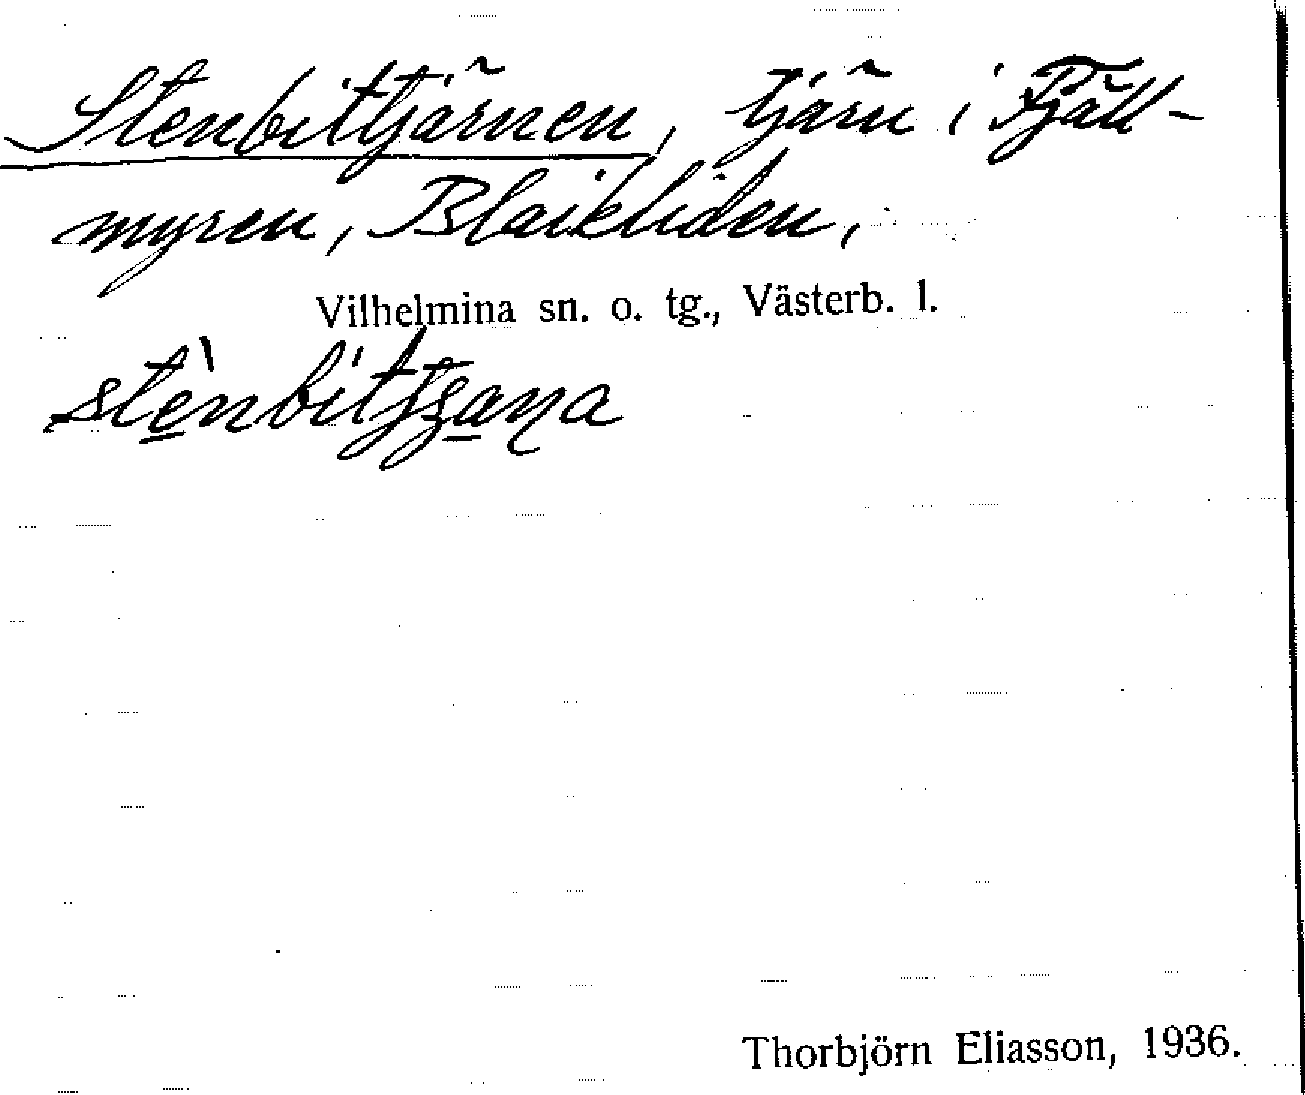 Stenbittjärnen, tjärn i Fjäll-
myren, Blaikliden,
Vilhelmina sn. o. tg., Västerb. l.
Thorbjörn Eliasson, 1936.